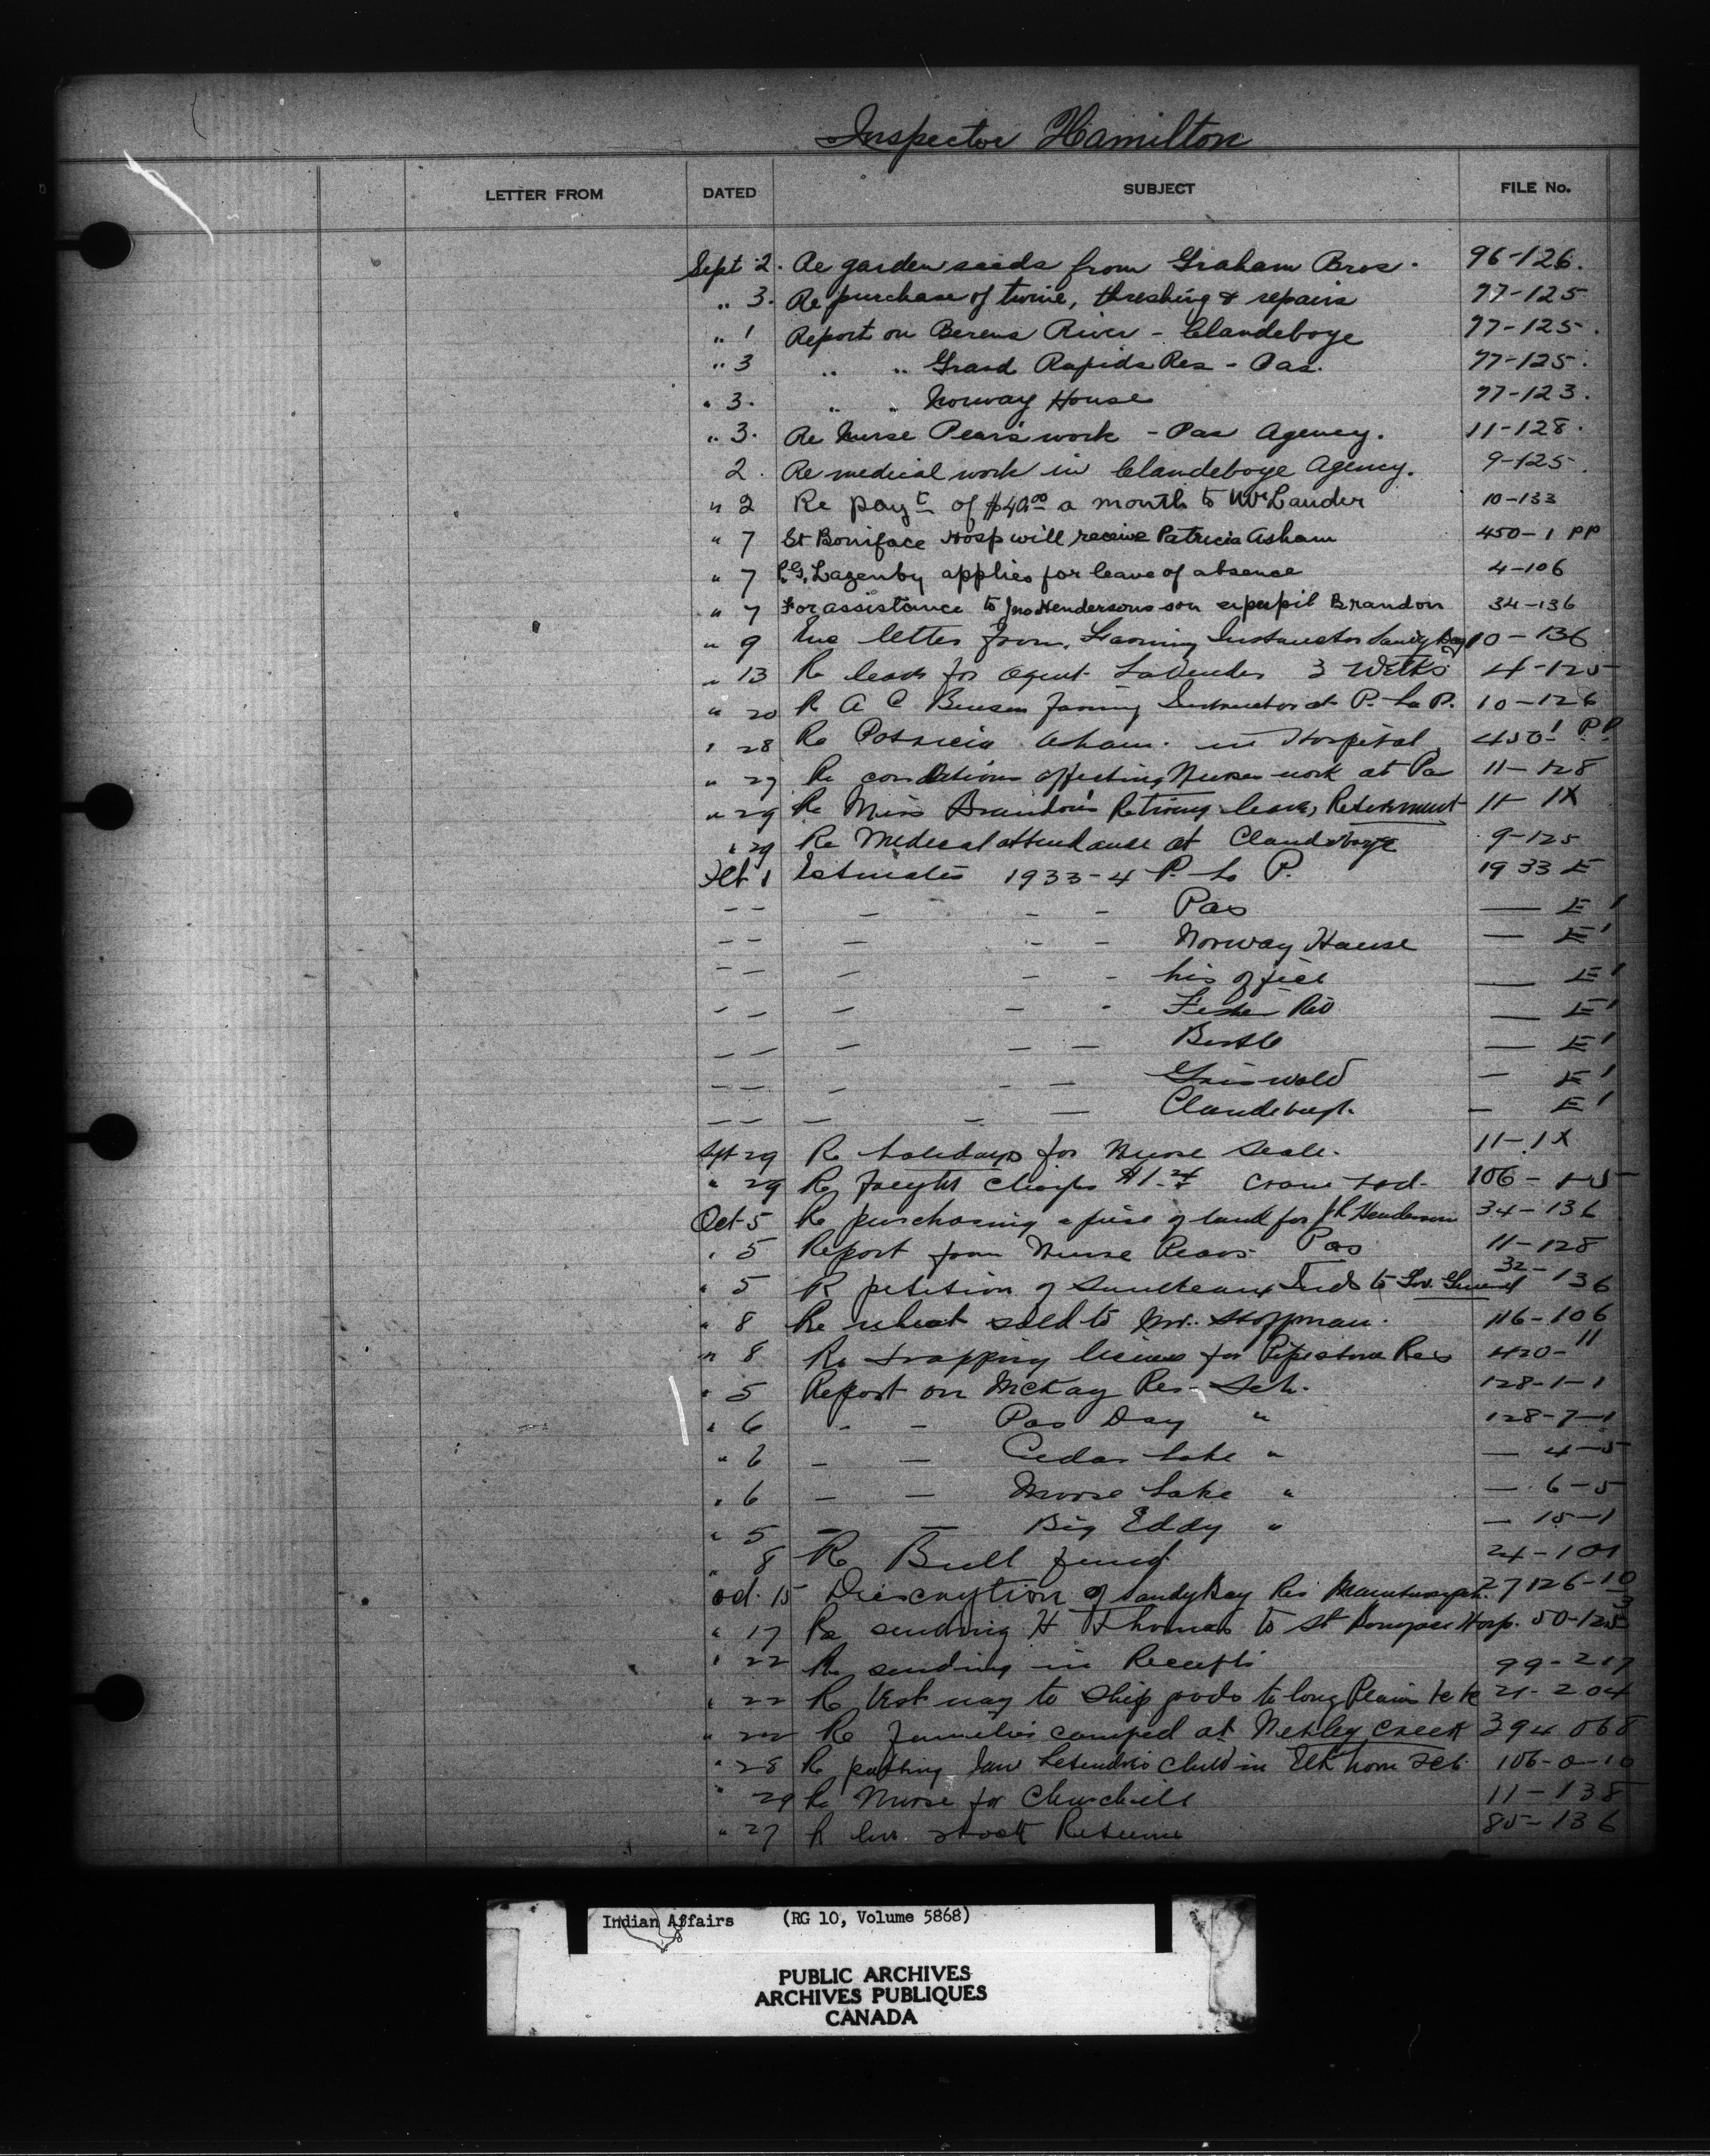 Inspector Hamilton
LETTER FROM DATED SUBJECT FILE No.
Sept 2. Re garden seeds from Graham Bros. 96-126.
" 3. Re purchase of twine, threshing & repairs 77-125
" 1 Report on Berens River - Clandeboye 77-125.
" 3 " " Grand Rapids Res - Pas. 77-125.
" 3. " " Norway House 77-123.
" 3. Re Nurse Pear's work - Pas Agency. 11-128.
2. Re medical work in Clandeboye Agency. 9-125.
" 2 Re payt of $40.00 a month to Lauder 10-133
" 7 St Boniface Hosp will receive Patricia Asham 450-1 PP
" 7 Lazenby applies for leave of absence 4-106
" 7 For assistance to Jno Hendersons son expupil Brandon 34-136
" 9 letter from Farming Instructor Sandy Bay 10-136
" 13 Re leave for Agent 3 Weeks 4-125
" 20 R A C Farming Instructor at P. La P. 10-126
" 28 Re Patricia Asham. in Hospital 450-1 PP
" 27 Re conditions affecting Nurses work at Pa 11-128
" 29 Re Miss Brandon's Retiring leave, Retirement 11-1X
" 29 Re Medical attendance at Clandeboye 9-125
1 Estimates 1933-4 P. La P. 1933 E
-- - - - Pas — E1
-- - - - Norway House — E1
-- - - - his office — E1
-- - - - Fisher Riv — E1
-- - - - Birtle — E1
-- - - - Griswold — E1
-- - - - — E1
Sept 29 Re holidays for Nurse Seale. 11-1X
" 29 Re freight charges 106-1-5
Oct 5 Re purchasing a piece of land for Henderson 34-136
" 5 Report from Nurse Pears Pas 11-128
" 5 R petition of Saulteaux Inds to Gov. General 32-136
" 8 Re wheat sold to Mr. 116-106
" 8 Re trapping license for Pipestone Res 420-11
" 5 Report on McKay Res. Sch. 128-1-1
" 6 - - Pas Day " 128-7-1
" 6 - - Cedar Lake " — 4-5
" 6 - - Moose Lake " — 6-5
" 5 - - Big Eddy " — 15-1
" 8 Re Bull 24-101
Oct. 15 Description of Sandy Bay Res 27126-10
" 17 Re sending H Thomas to St Boniface Hosp. 50-125
" 22 Re sending in Receipts 99-217
" 22 R Best way to ship goods to Long Plain 21-204
" 22 Re families camped at Netley Creek 394068
" 28 R putting child in Elkhorn 106-0-10
" 29 Re Nurse for Churchill 11-138
" 27 R live stock Returns 85-136
Indian Affairs (RG 10, Volume 5868)
PUBLIC ARCHIVES
ARCHIVES PUBLIQUES
CANADA